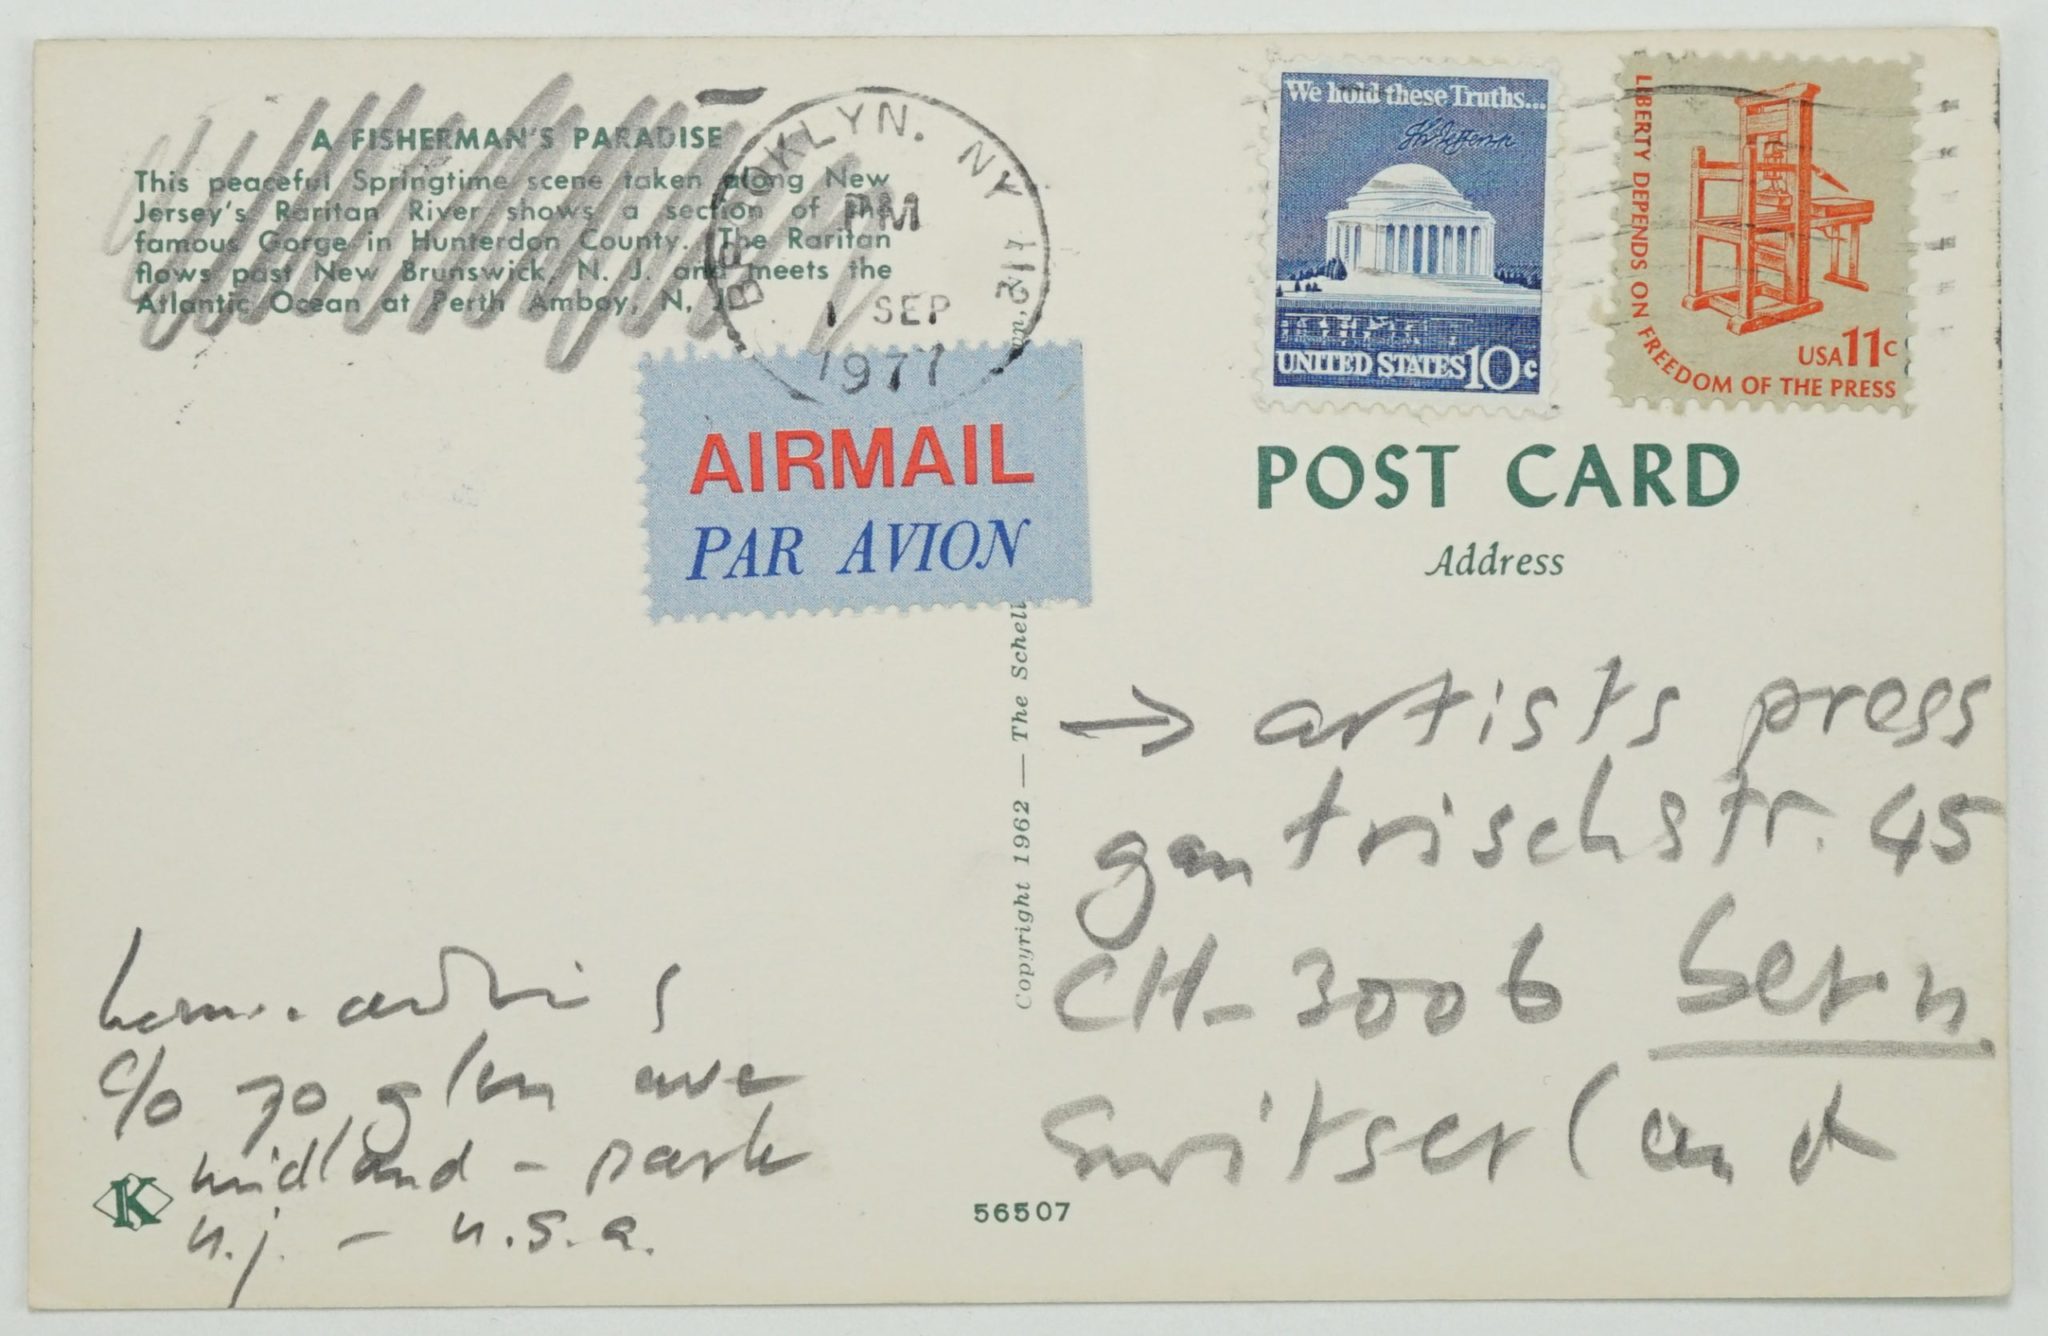 A FISHERMAN'S PARADISE
This peaceful Springtime scene taken along New
Jersey's Raritan River shows a section of the
famous Gorge in Hunterdon County. The Raritan
flows past New Brunswick, N. J. and meets the
Atlantic Ocean at Perth Amboy, N. J.
BROOKLYN. NY 112
PM
1 SEP
1977
AIRMAIL
PAR AVION
We hold these Truths...
Th Jefferson
UNITED STATES 10c
LIBERTY DEPENDS ON FREEDOM OF THE PRESS
USA 11c
POST CARD
Address
→ artists press
gantrischstr. 45
CH-3006 bern
switserland
Copyright 1962 — The Schell
c/o 70 glen ave
midland - park
n.j. - u.s.a.
K
56507